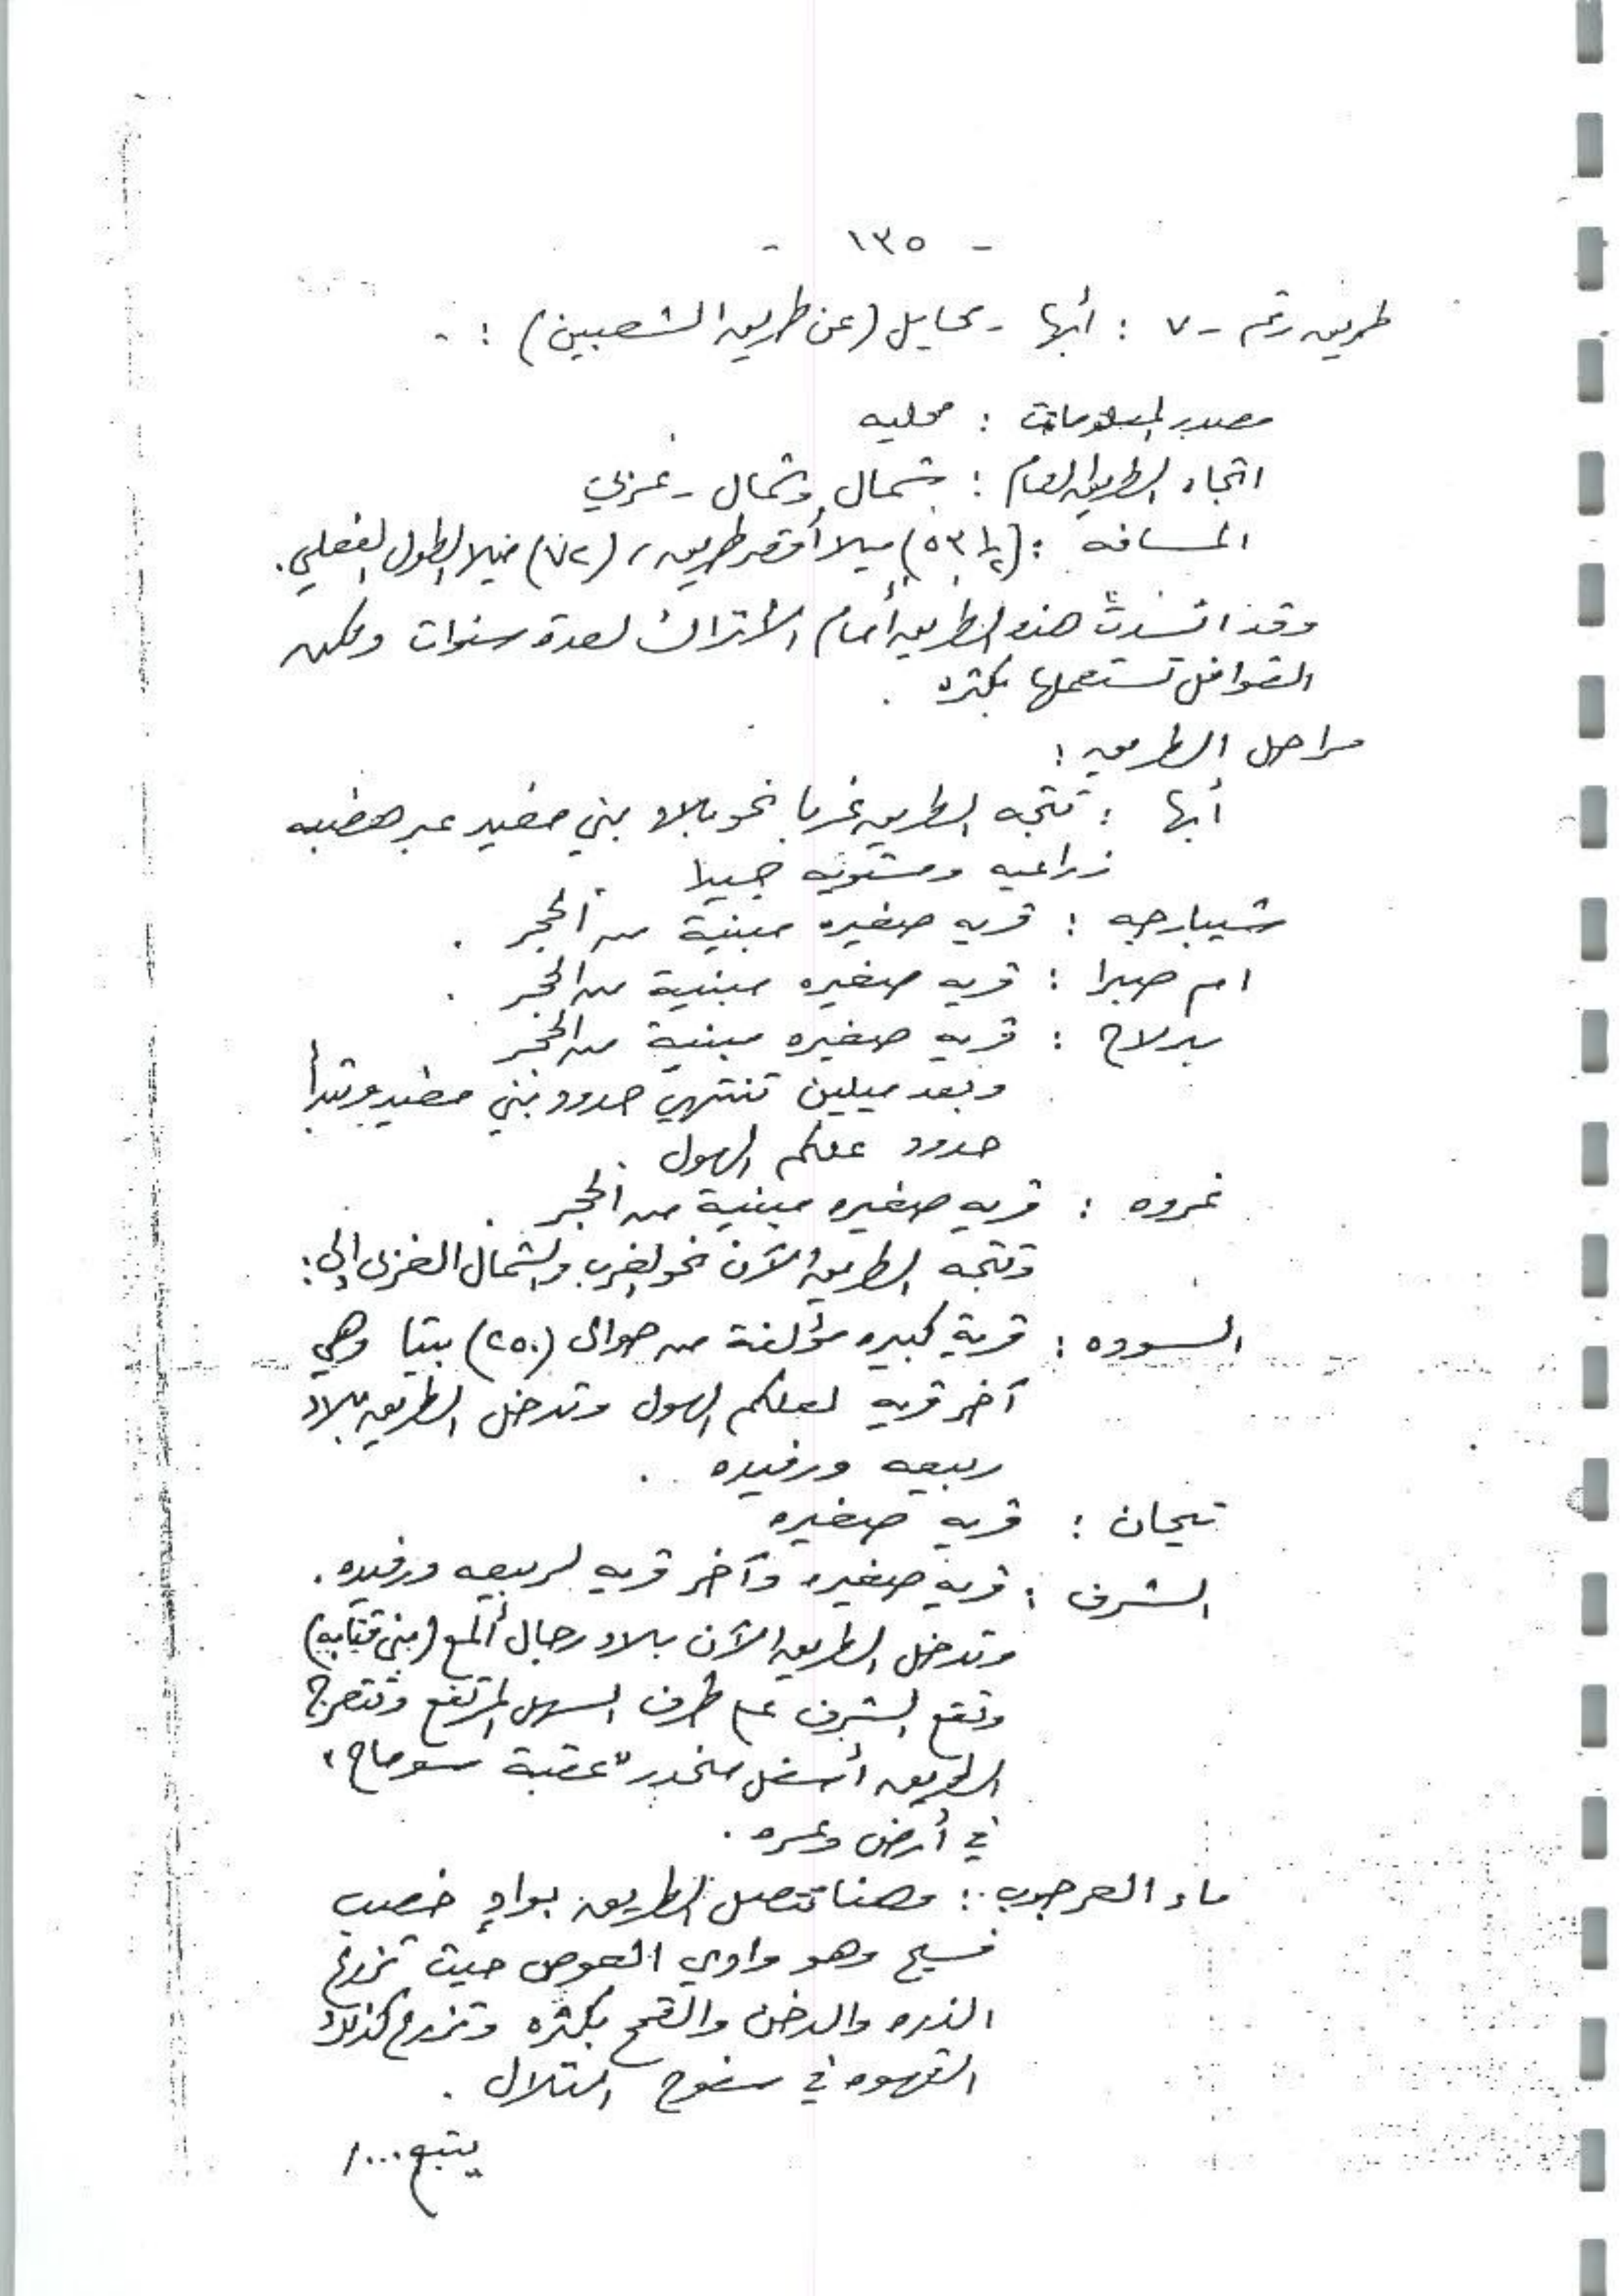 - ١٣٥ -
طريق رقم - ٧ : أبها - محايل (عن طريق الشعبين) : -
مصدر المعلومات : محليه
اتجاه الطريق العام : شمال وشمال - غربي
المسافه : (٥٣ ١/٢) ميلا أقصر طريق ، (٧٢) ميلا الطول الفعلي .
وقد انسدت هذه الطريق أمام الأتراك لعدة سنوات ولكن
القوافل تستعملها بكثره .
مراحل الطريق :
أبها : تتجه الطريق غربا نحو بلاد بني مغيد عبر هضبه
زراعيه ومستويه جبيلا
شيبارجه : قريه صغيره مبنية من الحجر .
ام صبرا : قريه صغيره مبنية من الحجر .
بدلاح : قريه صغيره مبنية من الحجر
وبعد ميلين تنتهي حدود بني مغيد وتبدأ
حدود علكم الهول .
نمروه : قريه صغيره مبنية من الحجر .
وتتجه الطريق الآن نحو الغرب والشمال الغربى إلى :
السوده : قرية كبيره مؤلفة من حوالى (٢٥٠) بيتا وهي
آخر قريه لعلكم الهول وتدخل الطريق بلاد
ربيعه ورفيده .
تيحان : قريه صغيره
الشرف : قريه صغيره وآخر قريه لربيعه ورفيده .
وتدخل الطريق الآن بلاد رجال ألمع (بنى قتابه)
وتقع الشرف على طرف السهل المرتفع وتتعرج
الطريق أسفل منحدر "عقبة سوماح"
في أرض وعره .
ماء العرجوب : وهنا تتصل الطريق بوادٍ خصيب
فسيح وهو وادي العوص حيث تزرع
الذره والدخن والقمح بكثره وتزرع كذلك
القهوه في سفوح التلال .
يتبع ... /